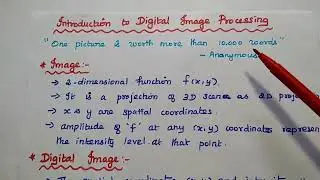 Introduction to Digital Image Processing
"One picture is worth more than 10,000 words"
- Ananymous
* Image:-
→ 2-dimensional function f(x,y).
→ It is a projection of 3D scene as 2D projec
→ x & y are spatial coordinates.
→ amplitude of 'f' at any (x,y) coordinates represen
the intensity level at that point.
* Digital Image:-